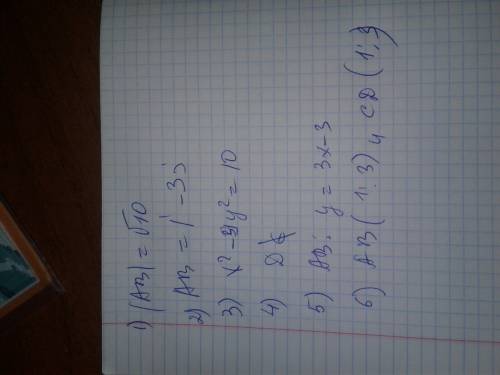 1) |AB| = √10
2) AB = i - 3j
3) x² - y² = 10
4) D
5) AB: y = 3x - 3
6) AB (1; 3) и CD (1; 3)